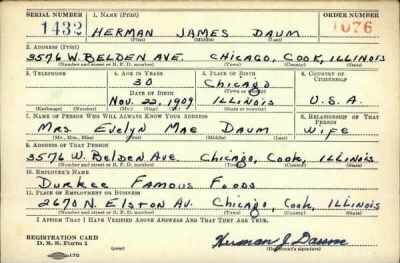 SERIAL NUMBER 1. NAME (Print) ORDER NUMBER
1432 HERMAN JAMES DAUM 1076
(First) (Middle) (Last)
2. ADDRESS (Print)
3576 W. BELDEN AVE. CHICAGO, COOK, ILLINOIS
(Number and street or R. F. D. number) (Town) (County) (State)
3. TELEPHONE 4. AGE IN YEARS 5. PLACE OF BIRTH 6. COUNTRY OF CITIZENSHIP
30 Chicago
DATE OF BIRTH (Town or county)
Nov. 22, 1909 ILLINOIS U.S.A.
(Exchange) (Number) (Mo.) (Day) (Yr.) (State or country)
7. NAME OF PERSON WHO WILL ALWAYS KNOW YOUR ADDRESS 8. RELATIONSHIP OF THAT PERSON
MRS. Evelyn MAE DAUM WIFE
(Mr., Mrs., Miss) (First) (Middle) (Last)
9. ADDRESS OF THAT PERSON
3576 W. BELDEN AVE. CHICAGO, COOK, ILLINOIS
(Number and street or R. F. D. number) (Town) (County) (State)
10. EMPLOYER'S NAME
DURKEE FAMOUS FOODS
11. PLACE OF EMPLOYMENT OR BUSINESS
2670 N. ELSTON AV. CHICAGO, COOK, ILLINOIS
(Number and street or R. F. D. number) (Town) (County) (State)
I AFFIRM THAT I HAVE VERIFIED ABOVE ANSWERS AND THAT THEY ARE TRUE.
REGISTRATION CARD
D. S. S. Form 1 (over) Herman J. Daum
(Registrant's signature)